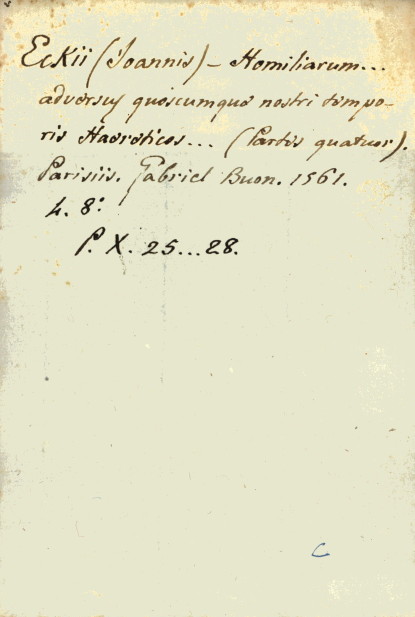 Eckii (Joannis) – Homiliarum...
adversus quoscumque nostri tempo-
ris Haereticos... (Partes quatuor).
Parisiis. Gabriel Buon. 1561.
4. 8º
P. X. 25...28.
C